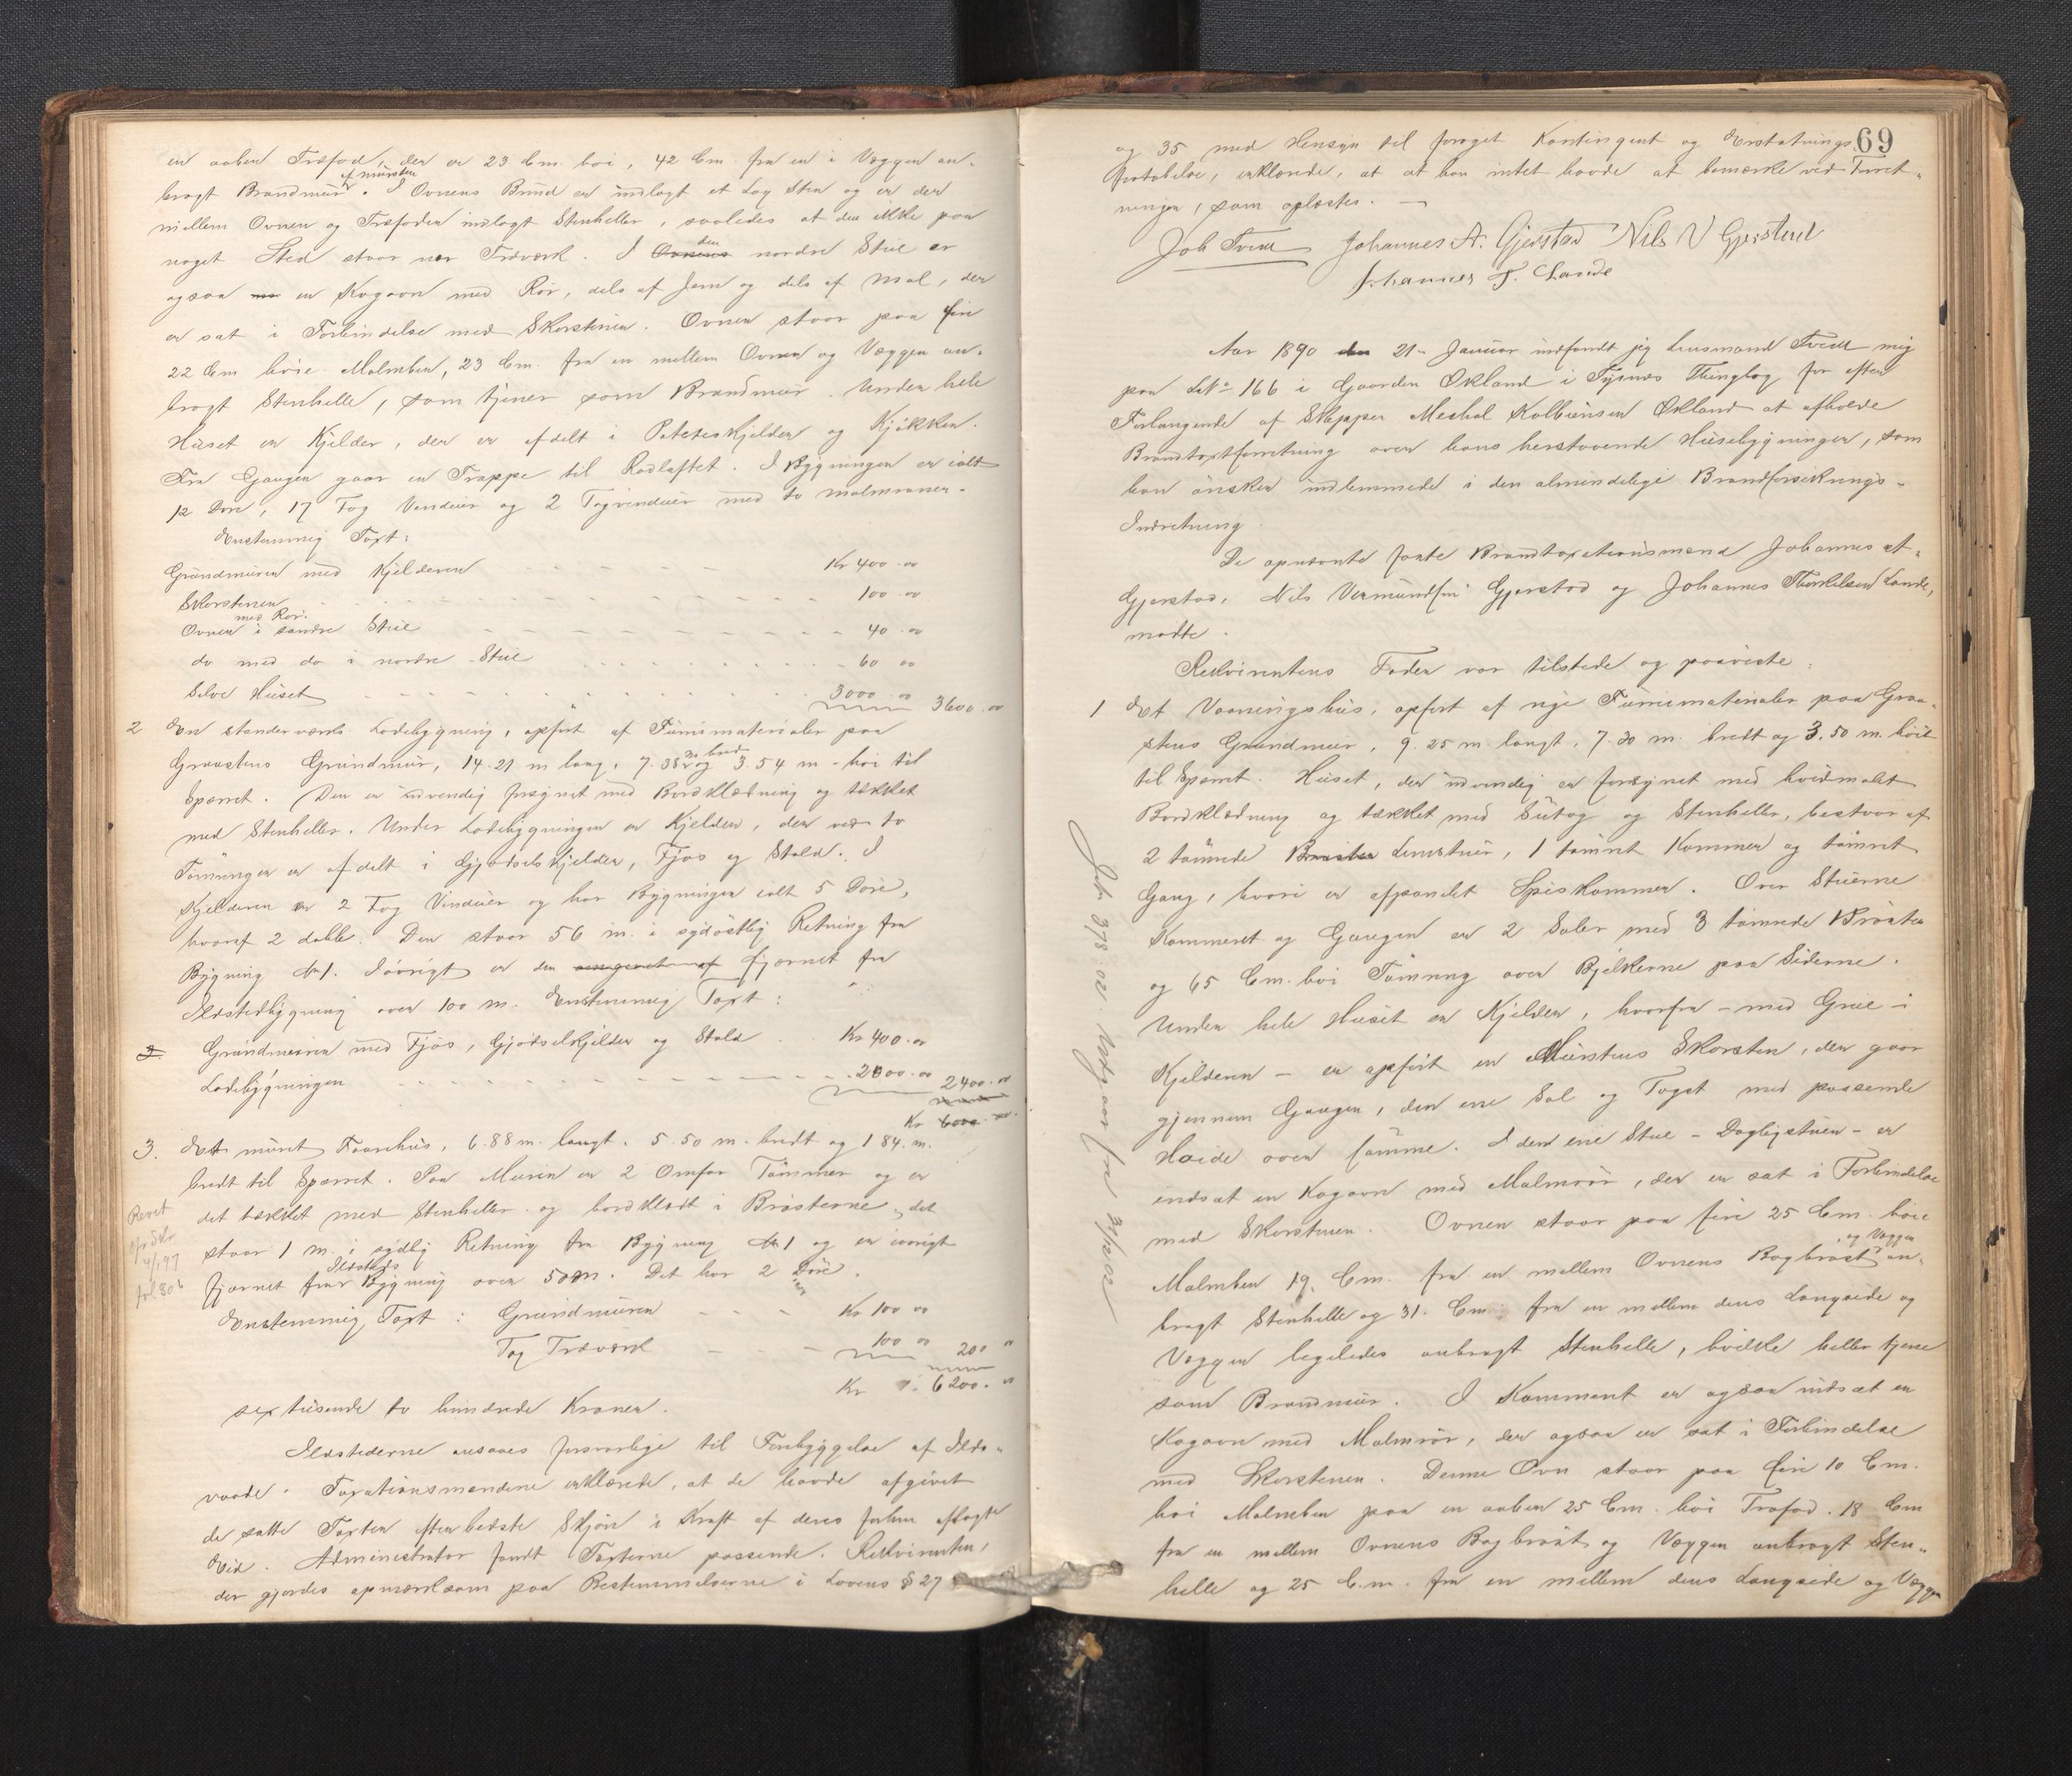 en aaben Træfod, der er 23 Cm. høi, 42 Cm. fra en i Væggen an-
bragt Brandmur af mursten. I Ovnens Bund er indlagt et Lag Sten og er der
mellem Ovnen og Træfoden indlagt Stenheller, saaledes at den ikke paa
noget Sted staar nær Træværk. I Ovnens den nordre Stue er
ogsaa en Kogovn med Rør, dels af Jern og dels af Mal, der
er sat i Forbindelse med Skorstenen. Ovnen staar paa fire
22 Cm høie Malmben, 23 Cm. fra en mellem Ovnen og Væggen an-
bragt Stenhelle, som tjener som Brandmur. Under hele
Huset er Kjelder, der er afdelt i Poteteskjelder og Kjøkken.
Fra Gangen gaar en Trappe til Rødloftet. I Bygningen er ialt
12 Døre, 17 Fag Vinduer og 2 Tagvinduer med to malmramer.
Enstemmig Taxt:
Grundmuren med Kjelderen Kr 400.00
Skorstenen 100.00
Ovnen med Rør i søndre Stue 40.00
do med do i nordre Stue 60 00
Selve Huset 3000.00 3600.00
2 En standerværks Ladebygning, opført af Furumaterialer paa
Graastens Grundmur, 14.21 m lang, 7.38 m bred og 3.54 m. høi til
Sparret. Den er udvendig forsynet med Bordklædning og tækket
med Stenheller. Under Ladebygningen er Kjelder, der ved to
Tømringer er afdelt i Gjødselskjelder, Fjøs og Stald. I
Kjelderen er 2 Fag Vinduer og har Bygningen ialt 5 Døre,
hvoraf 2 doble. Den staar 56 m. i sydøstlig Retning fra
Bygning № 1. Iøvrigt er den fjernet fra
Ildstedbygning over 100 m. Enstemmig Taxt:
Grundmuren med Fjøs, Gjødselkjelder og Stald Kr 400.00
Ladebygningen 2000.00 2400.00
Kr 6000.00
3. Et muret Faarehus, 6.88 m. langt, 5.50 m. bredt og 1 84. m.
bredt til Sparret. Paa Muren er 2 Omfar Tømmer og er
det tækket med Stenheller og bordklædt i Brøsterne, det
staar 1 m. i sydlig Retning fra Bygning № 1 og er iøvrigt
fjernet fra Ildsteds Bygning over 50 m. Det har 2 Døre.
Enstemmig Taxt: Grundmuren Kr 100 00
Tag Træværk 100 00 200 "
Kr 6200.00
sex tusende to hundrede Kroner.
Ildstederne ansaaes forsvarlige til Forebyggelse af Ilds-
vaade. Taxationsmændene erklærede, at de havde afgivet
de satte Taxter efter bedste Skjøn i Kraft af deres forhen aflagte
Eid. Administrator fandt Taxterne passende. Rekvirenten,
der gjordes opmærksom paa Bestemmelserne i Lovens § 27
Revet
69
og 35 med Hensyn til forøget Kontingent og Erstatnings
Fortabelse, erklærede, at at han intet havde at bemærke ved Forret-
ningen, som oplæstes. —
Joh Tveit Johannes A. Gjerstad Nils V Gjerstad
Johannes T. Lande
Aar 1890 den 21 Januar indfandt jeg Lensmand Tveit mig
paa LNo 166 i Gaarden Økland i Tysnæs Thinglag for efter
Forlangende af Skipper Mechal Kolbensen Økland at afholde
Brandtaxtforretning over hans herstaaende Husebygninger, som
han ønsker indlemmede i den almindelige Brandforsikrings-
Indretning.
De opnævnte faste Brandtaxationsmænd Johannes A.
Gjerstad, Nils Vermundsen Gjerstad og Johannes Therkelsen Lande,
mødte.
Rekvirentens Fader var tilstede og paaviste:
1 Et Vaaningshus, opført af nye Furumaterialer paa Graa-
stens Grundmur, 9.25 m. langt, 7.30 m. bredt og 3.50 m. høit
til Sparret. Huset, der udvendig er forsynet med hvidmalet
Bordklædning og tækket med Sutag og Stenheller, bestaar af
2 tømrede Lemstuer, 1 tømret Kammer og tømret
Gang, hvori er afpanelet Spiskammer. Over Stuerne
Kammeret og Gangen er 2 Saler med 3 tømrede Brøster
og 65 Cm. høi Tømring over Bjelkerne paa Siderne.
Under hele Huset er Kjelder, hvorfra - med Grue i
Kjelderen - er opført en Murstens Skorsten, der gaar
gjennem Gangen, den ene Sal og Taget med passende
Høide over samme. I den ene Stue - Dagligstuen - er
indsat en Kogovn med Malmrør, der er sat i Forbindelse
med Skorstenen. Ovnen staar paa fire 25 Cm. høie
Malmben 19. Cm. fra en mellem Ovnens Bagbrøst og Væggen an-
bragt Stenhelle og 31. Cm fra en mellem dens Langside og
Væggen ligeledes anbragt Stenhelle, hvilke heller tjene
som Brandmur. I Kammeret er ogsaa indsat en
Kogovn med Malmrør, der ogsaa er sat i Forbindelse
med Skorstenen. Denne Ovn staar paa fire 10 Cm.
høi Malmben paa en aaben 25 Cm. høi Træfod. 18 Cm
fra en mellem Ovnens Bagbrøst og Væggen anbragt Sten-
helle og 25 C.m. fra en mellem dens Langside og Væggen